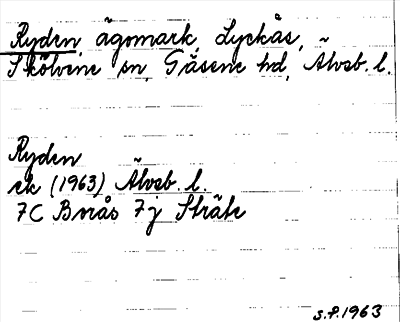 Ryden, ägomark, Lyckås,
Skölvene sn, Gäsene hd, Älvsb. l.
Ryden
ek (1963) Älvsb. l.
7C Bnås 7j Sträte
S.F. 1963